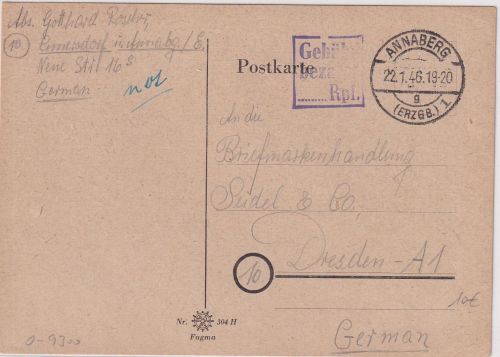 Abs. Gotthard
10 /E.
Neue Str. 16
German
not
Postkarte
Gebühr
beza
Rpf.
ANNABERG
22.1.46.19-20
g
(ERZGB.) 1
An die
Briefmarkenhandlung
Seidel & Co.
Dresden-A1
10
10€
Nr. 304 H
Fugma
0-9300
German